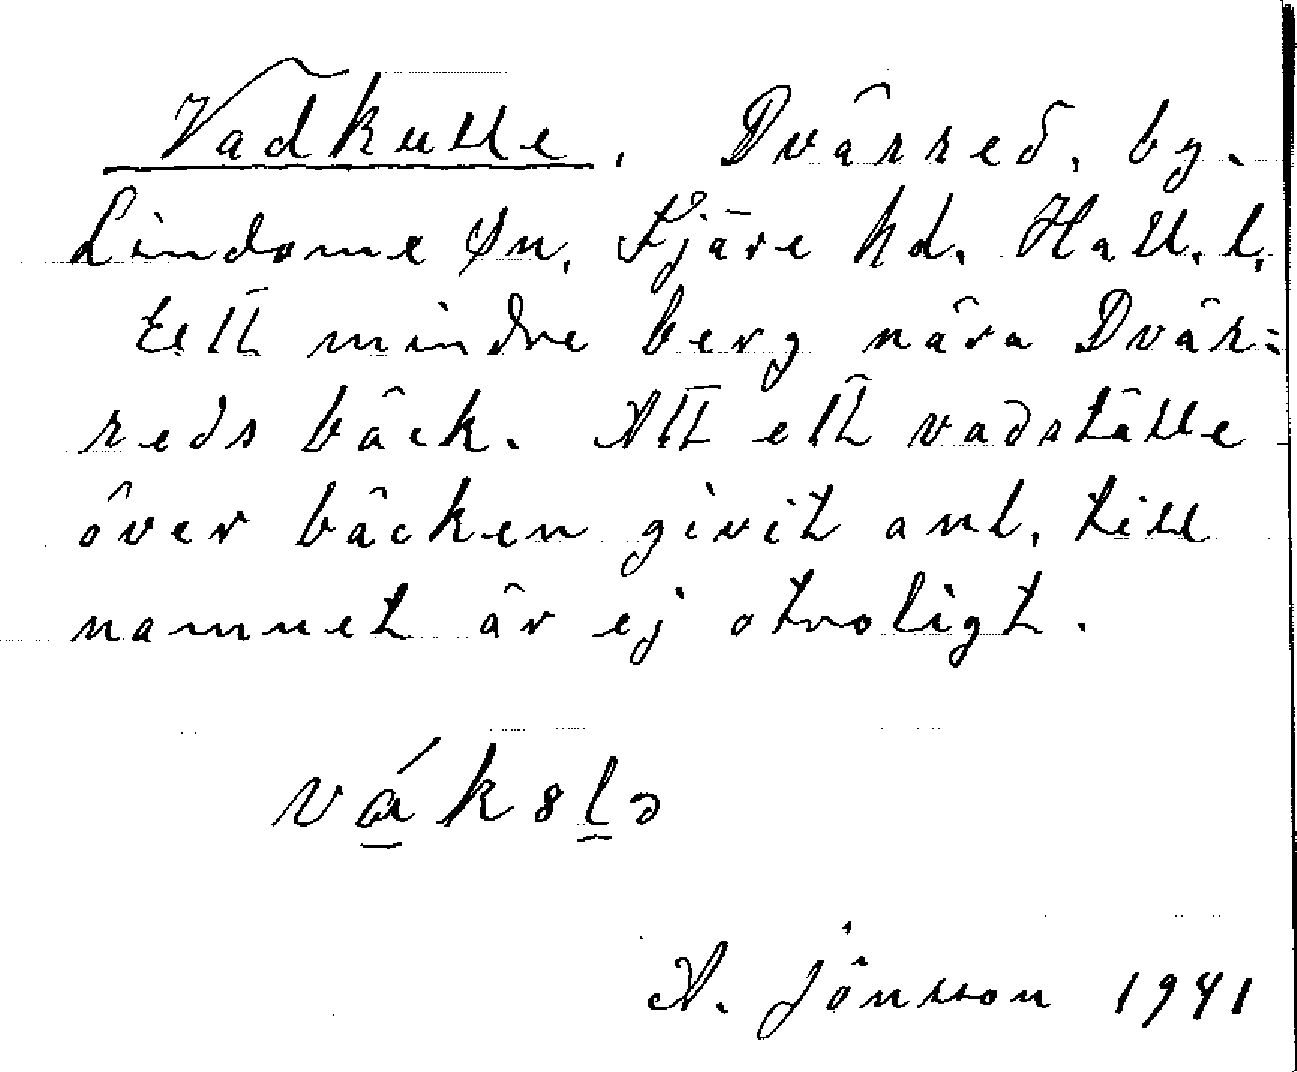 Vadkulle. Dvärred, by.
Lindome sn, Fjäre hd. Hall. l.
Ett mindre berg nära Dvär-
reds bäck. Att ett vadställe
över bäcken givit anl. till
namnet är ej otroligt.
vák8lə
A. Jönsson 1941